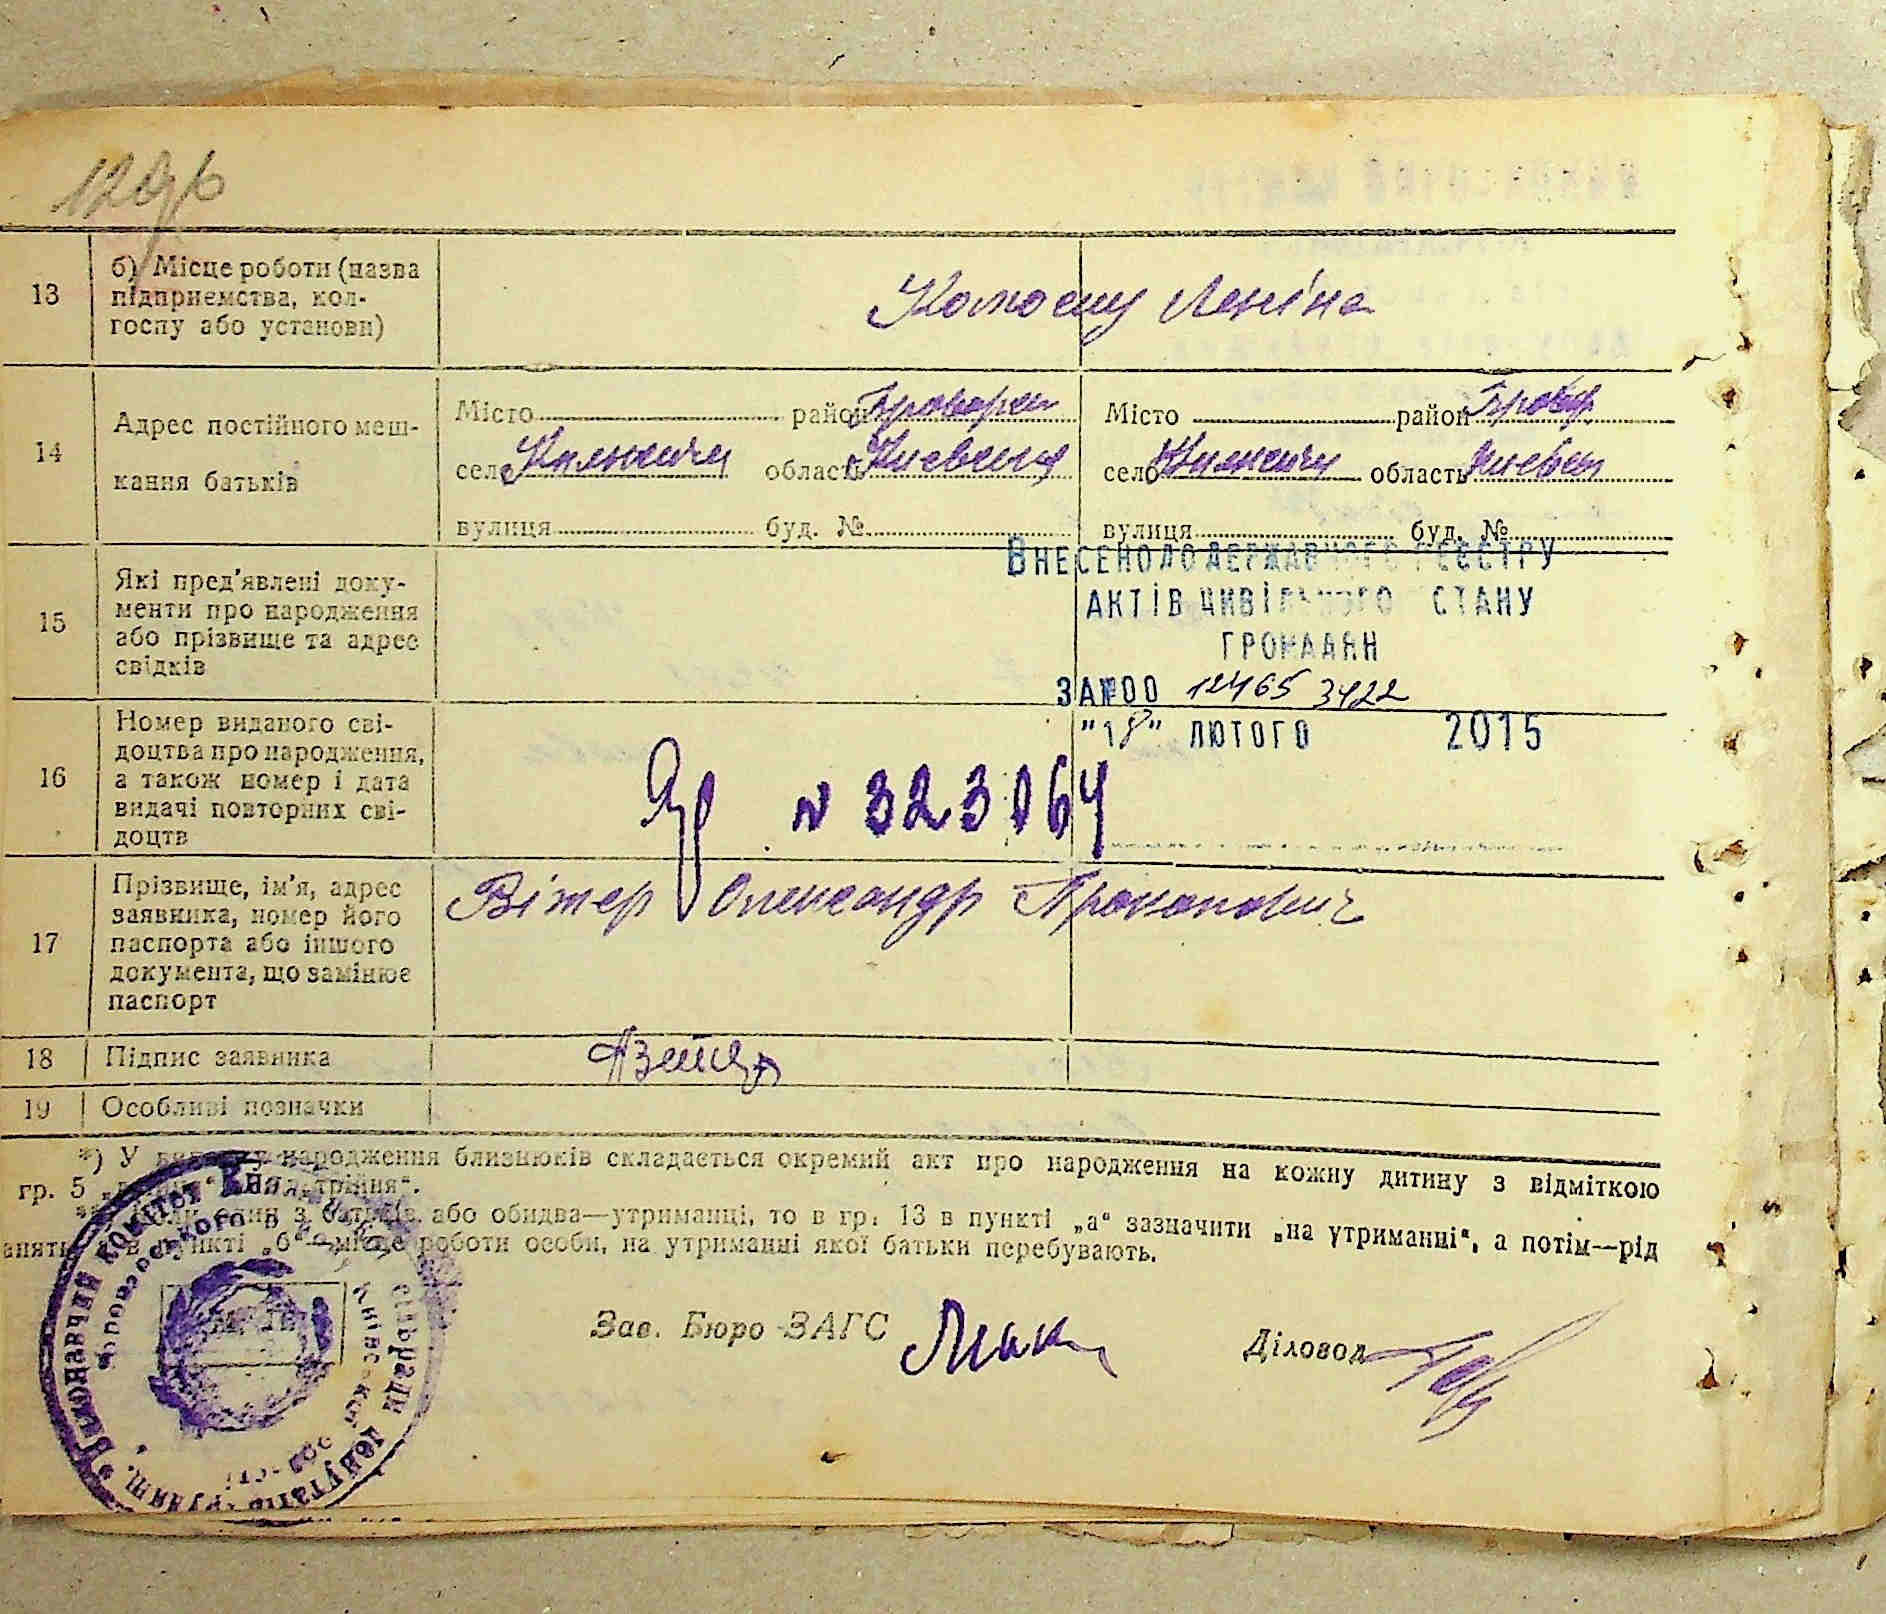 13 б) Місце роботи (назва
підприємства, кол-
госпу або установи)
Леніна
14 Адрес постійного меш-
кання батьків
Місто район
село область
вулиця буд. №
Місто район
село область
вулиця буд. №
15 Які пред'явлені доку-
менти про народження
або прізвище та адрес
свідків
ВНЕСЕНО ДО ДЕРЖАВНОГО РЕЄСТРУ
АКТІВ ЦИВІЛЬНОГО СТАНУ
ГРОМАДЯН
ЗА №00 12465 3422
"18" ЛЮТОГО 2015
16 Номер виданого сві-
доцтва про народження,
а також номер і дата
видачі повторних сві-
доцтв
N 323064
17 Прізвище, ім'я, адрес
заявника, номер його
паспорта або іншого
документа, що замінює
паспорт
Вітер Олександр Прокопович
18 Підпис заявника
19 Особливі позначки
*) У випадку народження близнюків складається окремий акт про народження на кожну дитину з відміткою
гр. 5 „двійня“ „трійня“.
**) Коли один з батьків або обидва—утриманці, то в гр. 13 в пункті „а“ зазначити „на утриманні“, а потім—рід
занять, а в пункті „б“—місце роботи особи, на утриманні якої батьки перебувають.
Зав. Бюро ЗАГС
Діловод
Виконавчий комітет
сільради депутатів трудящ.
Київської області